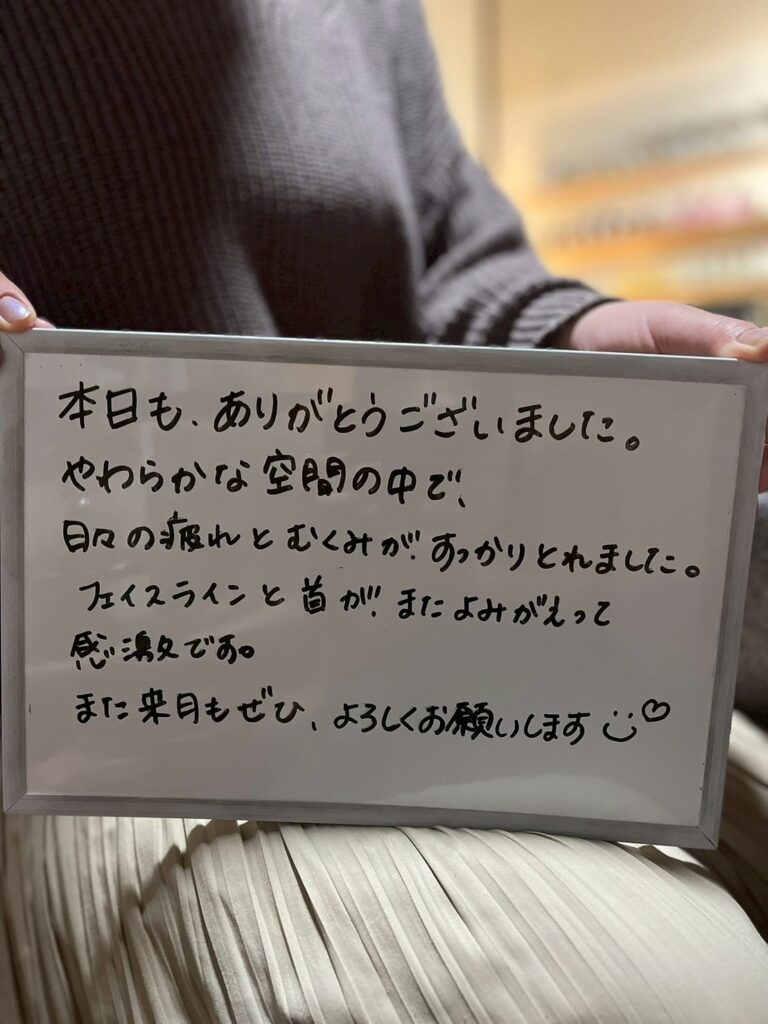 本日も、ありがとうございました。
やわらかな空間の中で、
日々の疲れとむくみが、すっかりとれました。
フェイスラインと首が、またよみがえって
感激です。
また来月もぜひ、よろしくお願いします